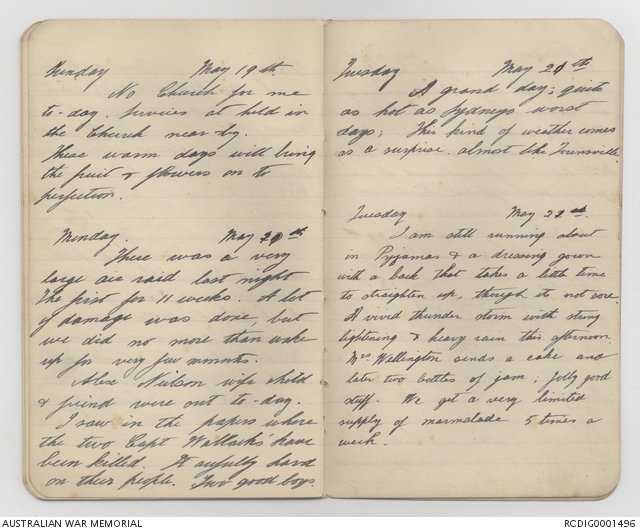 Sunday May 19th.
No Church for me
to-day. Services at held in
the Church near by.
These warm days will bring
the fruit & flowers on to
perfection.
Monday May 20th
There was a very
large air raid last night
The first for 11 weeks. A lot
of damage was done, but
we did no more than wake
up for very few mmnts.
Alex Neilson wife child
& friend were out to-day.
I saw in the papers where
the two Capt Wallacks' have
been killed. It awfully hard
on their people. Two good boys.
Tuesday May 21th
A grand day; quite
as hot as Sydneys worst
days; This kind of weather comes
as a surprise. almost like Townsville.
Tuesday May 22nd.
I am still running about
in Pyjamas & a dressing gown
with a back that takes a little time
to straighten up, though it not sore.
A vivid thunder storm with strong
lightening & heavy rain this afternoon.
Mrs Wellington sends a cake and
later two bottles of jam; jolly good
stuff. We get a very limited
supply of marmalade 5 times a
week.
AUSTRALIAN WAR MEMORIAL
RCDIG0001496